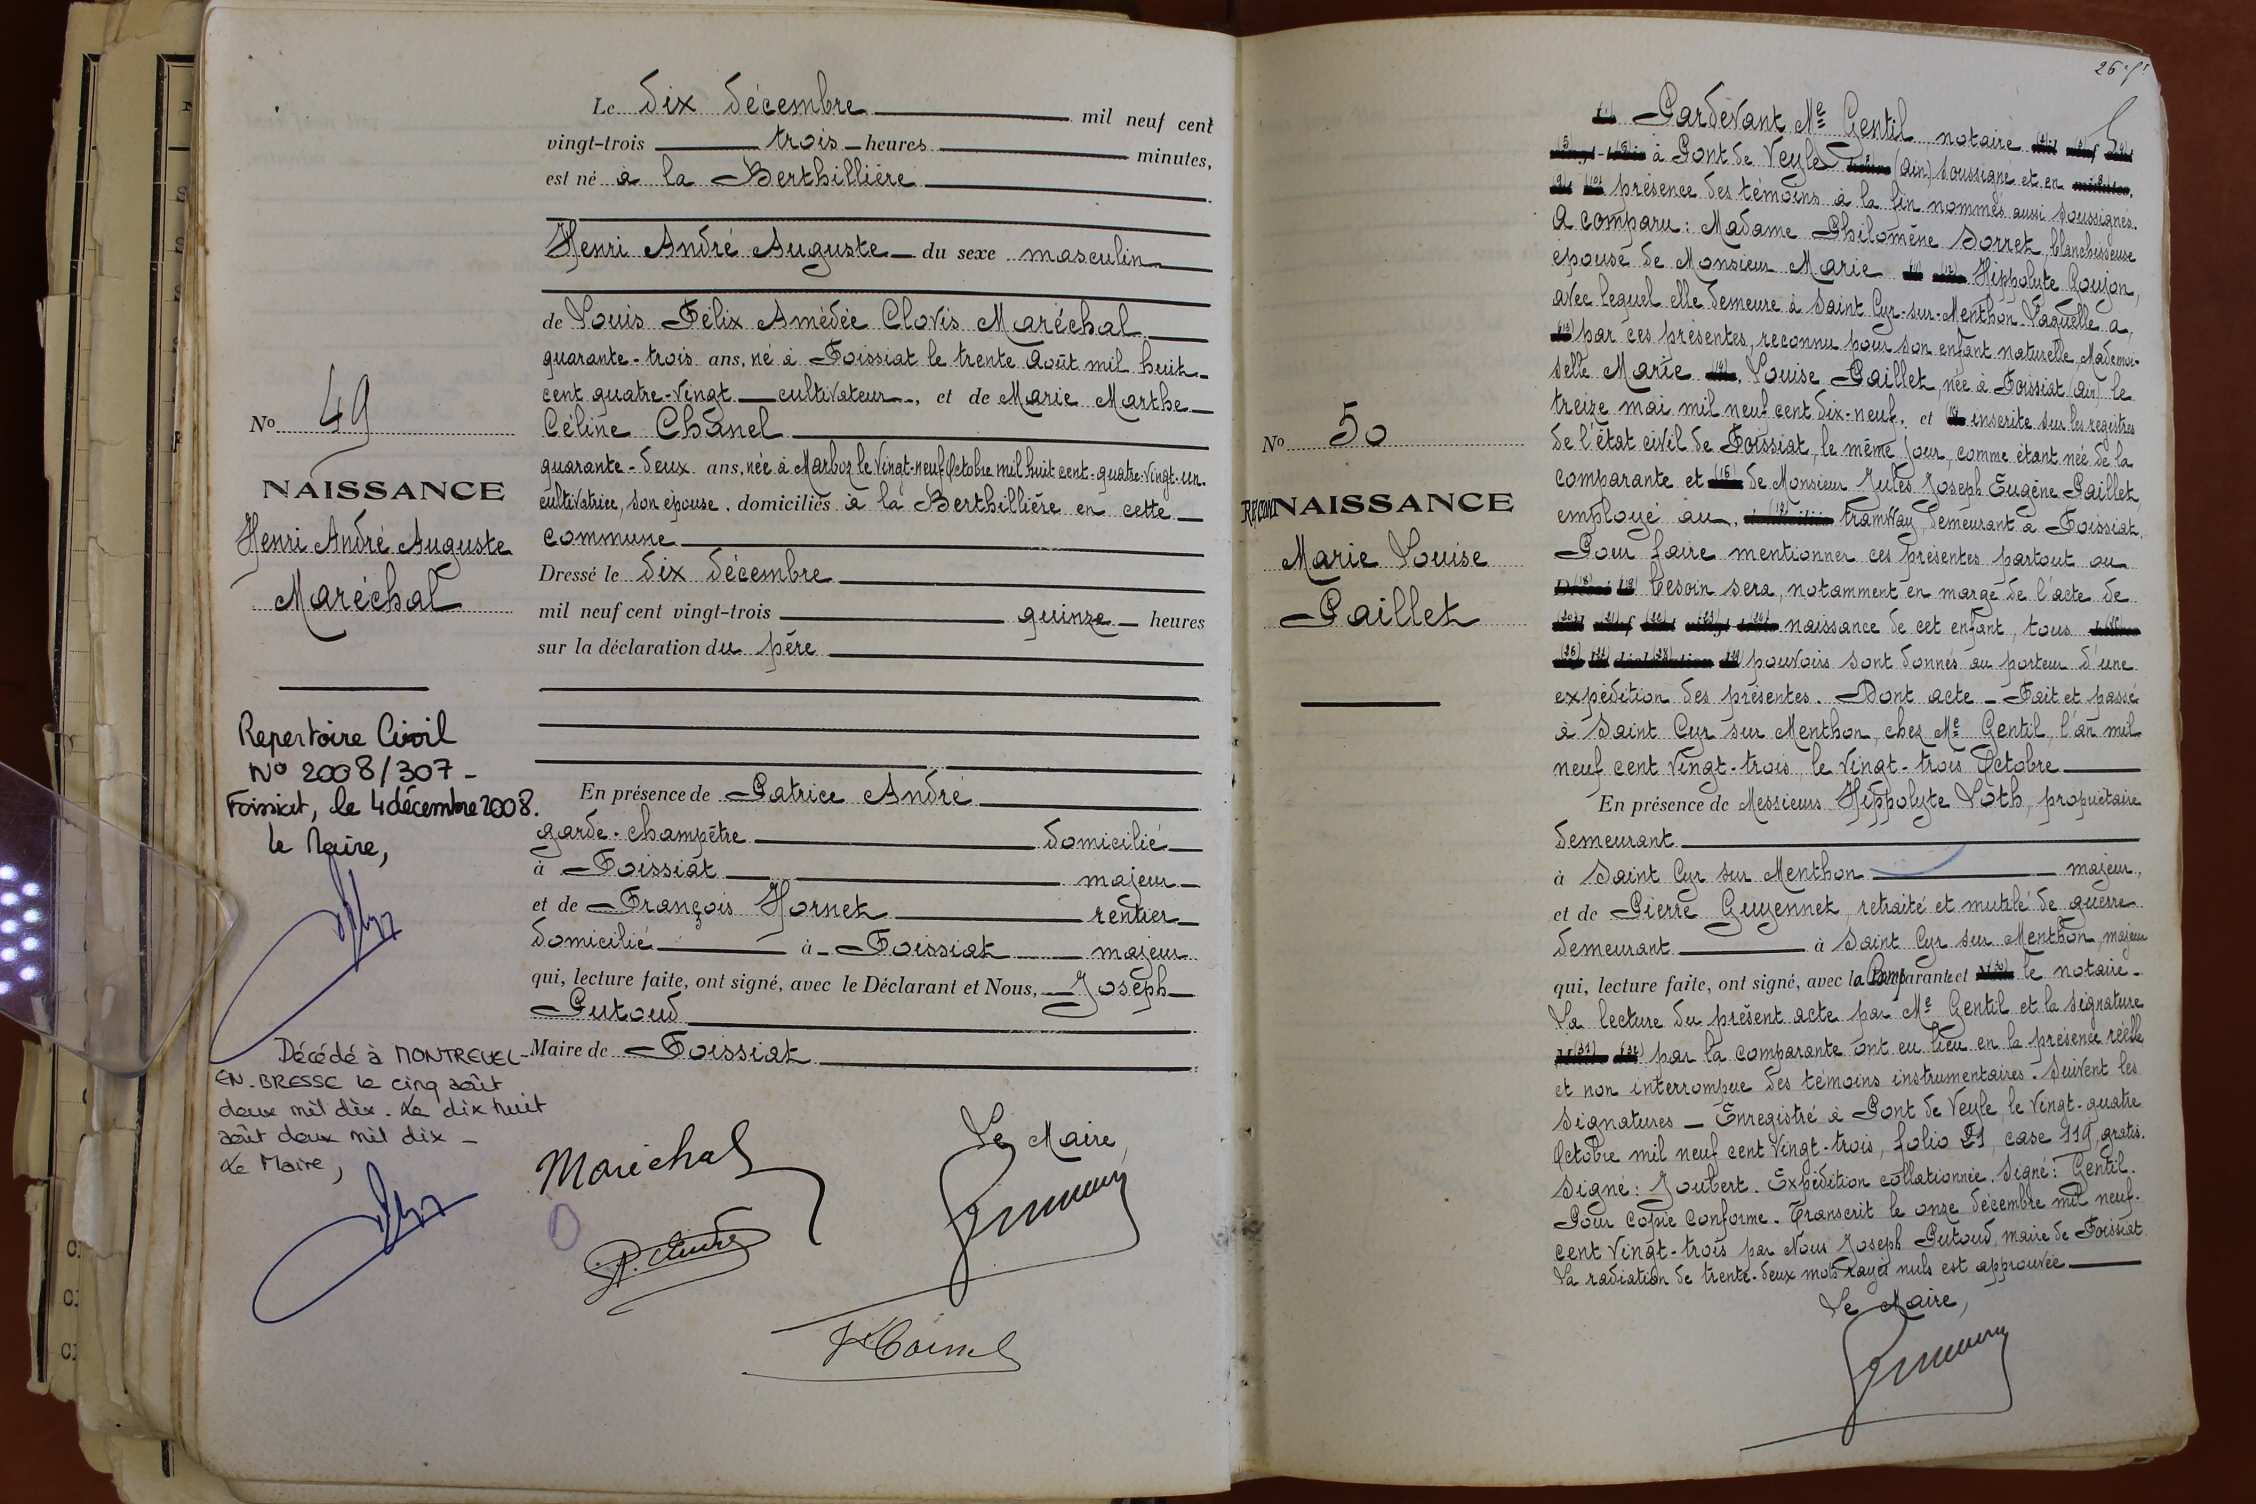 Le dix décembre mil neuf cent
vingt-trois trois heures minutes,
est né à la Berthillière
Henri André Auguste du sexe masculin
de Louis Félix Amédée Clovis Maréchal
quarante-trois ans, né à Foissiat le trente Août mil huit
cent quatre-vingt cultivateur, et de Marie Marthe
Céline Chanel
quarante-deux ans, née à Marboz le vingt-neuf Octobre mil huit cent-quatre-vingt-un
cultivatrice, son épouse, domiciliés à la Berthillière en cette
commune
Dressé le dix décembre
mil neuf cent vingt-trois quinze heures
sur la déclaration du père
En présence de Patrice André
garde-champêtre domicilié
à Foissiat majeur
et de François Hornet rentier
domicilié à Foissiat majeur
qui, lecture faite, ont signé, avec le Déclarant et Nous, Joseph
Putoud
Maire de Foissiat
Le Maire,
Maréchal
P. André
No 49
NAISSANCE
Henri André Auguste
Maréchal
Repertoire Civil
No 2008/307 -
Foissiat, le 4 décembre 2008.
le Maire,
Décédé à MONTREVEL-
EN-BRESSE le cinq août
deux mil dix. Le dix huit
août deux mil dix -
Le Maire,
No 50
RECONNAISSANCE
Marie Louise
Paillet
Pardevant Me Gentil notaire
à Pont de Veyle (Ain) soussigné et en
présence des témoins à la fin nommés aussi soussignés.
A comparu: Madame Philomène Sorret, blanchisseuse
épouse de Monsieur Marie Hippolyte Goujon,
avec lequel elle demeure à Saint Cyr-sur-Menthon. Laquelle a,
par ces présentes, reconnu pour son enfant naturelle, Mademoi-
selle Marie Louise Paillet, née à Foissiat (Ain) le
treize mai mil neuf cent dix-neuf, et inscrite sur les registres
de l'état civil de Foissiat, le même jour, comme étant née de la
comparante et de Monsieur Jules Joseph Eugène Paillet,
employé au tramway, demeurant à Foissiat.
Pour faire mentionner ces présentes partout ou
besoin sera, notamment en marge de l'acte de
naissance de cet enfant, tous
pouvoirs sont donnés au porteur d'une
expédition des présentes. Dont acte - Fait et passé
à Saint Cyr sur Menthon, chez Me Gentil, l'an mil
neuf cent vingt-trois, le vingt-trois Octobre
En présence de Messieurs Hippolyte Loth, propriétaire
demeurant
à Saint Cyr sur Menthon majeur,
et de Pierre Guyennet, retraité et mutilé de guerre
demeurant à Saint Cyr sur Menthon, majeur
qui, lecture faite, ont signé, avec la Comparante et le notaire.
La lecture du présent acte par Me Gentil et la signature
par la comparante ont eu lieu en la présence réelle
et non interrompue des témoins instrumentaires. Suivent les
signatures - Enregistré à Pont de Veyle, le vingt-quatre
Octobre mil neuf cent vingt-trois, folio case 119, gratis.
Signé: Joubert. Expédition collationnée. Signé: Gentil.
Pour copie conforme. Transcrit le onze décembre mil neuf-
cent vingt-trois par Nous Joseph Putoud, maire de Foissiat
La radiation de trente-deux mots rayés nuls est approuvée
Le Maire,